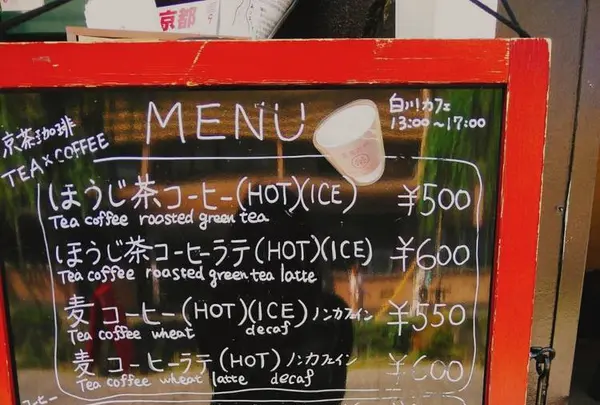 京都
MENU
白川カフェ
13:00~17:00
京茶珈琲
TEA×COFFEE
ほうじ茶コーヒー(HOT)(ICE) ¥500
Tea coffee roasted green tea
ほうじ茶コーヒーラテ(HOT)(ICE) ¥600
Tea coffee roasted green tea latte
麦コーヒー(HOT)(ICE)ノンカフェイン ¥550
Tea coffee wheat decaf
麦コーヒーラテ(HOT)ノンカフェイン ¥600
Tea coffee wheat latte decaf
コーヒー